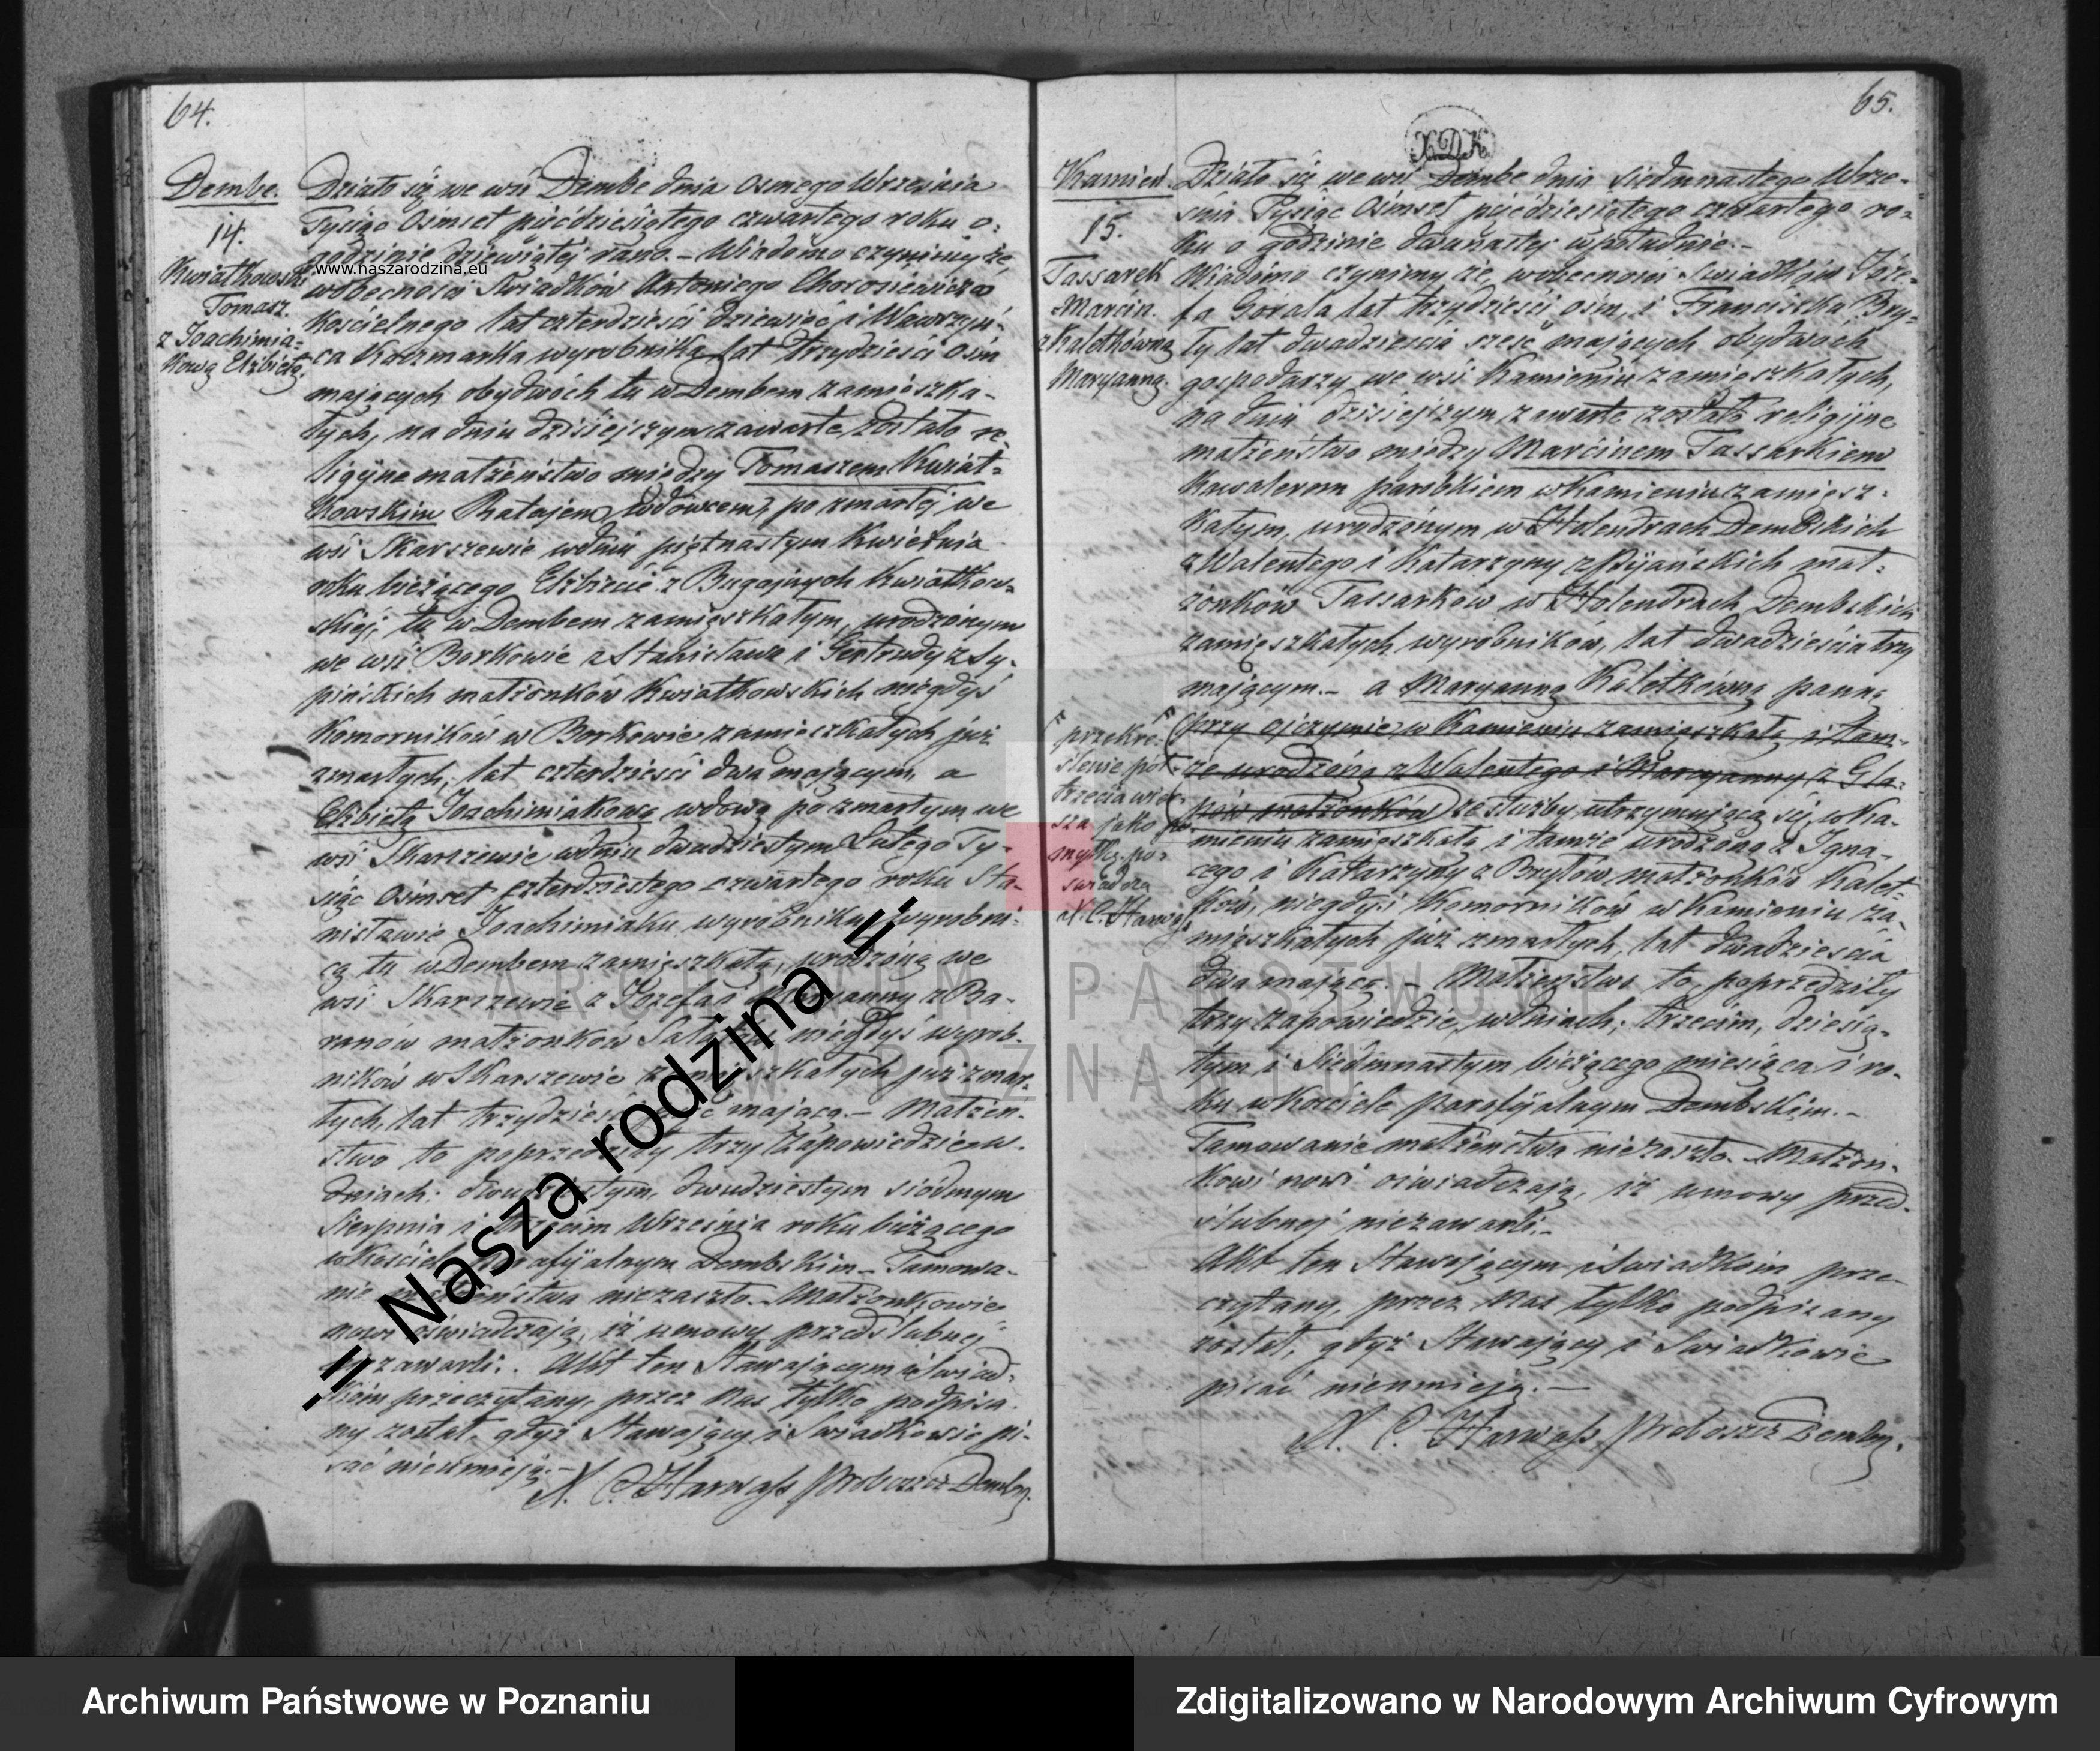 64.
Dembe.
14.
Kwiatkowski
Tomasz.
z Joachimia-
kową Elżbietą.
Działo się we wsi Dembe dnia Osmego Września
Tysiąc Osmset pięćdziesiątego czwartego roku o
godzinie dziewiątej rano. – Wiadomo czynimy że
www.naszarodzina.eu
wobecności Swiadków Antoniego
Kościelnego lat czterdzieści dziewięć i Wawrzyń-
ca Kaczmarka wyrobnika lat trzydzieści osm
mających obydwóch tu w Dembem zamieszka-
łych, na dniu dzisiejszym zawarte zostało re-
ligijne małżeństwo między Tomaszem Kwiat-
kowskim Ratajem, wdowcem, po zmarłej we
wsi Skarszewie wdniu piętnastym Kwietnia
roku bieżącego Elżbiecie z Bugajnych Kwiatkow-
skiej, tu w Dembem zamieszkałym, urodzonym
we wsi Borkowie z Stanisława i Gertrudy z Ly-
pińskich małżonków Kwiatkowskich niegdyś
Komorników w Borkowie zamieszkałych już
zmarłych, lat czterdzieści dwa mającym, a
Elżbietą Joachimiakową wdową po zmarłym we
wsi Skarszewie wdniu dwudziestym Lutego Ty-
siąc Osmset czterdziestego czwartego roku Sta-
nisławie Joachimiaku wyrobniku, wyrobni-
cą tu w Dembem zamieszkałą, urodzoną we
wsi Skarszewie z Józefa i Maryanny z Ba-
ranów małżonków niegdyś wyrob-
ników w Skarszewie zamieszkałych już zmar-
łych, lat trzydzieści mającą. – Małżeń-
stwo to poprzedziły trzy Zapowiedzie w
dniach: dwudziestym, dwudziestym siódmym
Sierpnia i trzecim Września roku bieżącego
w Kościele Parafijalnym Dembskim – Tamowa-
nie małżeństwa niezaszło. Małżonkowie
nowi oświadczają, iż umowy przedślubnej
niezawarli. Akt ten Stawającym i Swiad-
kom przeczytany, przez Nas tylko podpisa-
ny został, gdyż Stawający i Swiadkowie pi-
sać nieumieją. –
X. C. Harwass Proboszcz Dembs.
= Nasza rodzina =
65.
XDK
Kamień.
15.
Tassarek
Marcin.
z Kaletkówną
Maryanną.
Działo się we wsi Dembe dnia Siedmnastego Wrze-
śnia Tysiąc Osmset pięćdziesiątego czwartego ro-
ku o godzinie dwunastej wpołudnie. –
Wiadomo czynimy że, wobecności Swiadków Józe-
fa Gorala lat trzydzieści osm, i Franciszka Bry-
ły lat dwadzieścia sześć mających obydwóch
gospodarzy we wsi Kamieniu zamieszkałych,
na dniu dzisiejszym zawarte zostało religijne
małżeństwo między Marcinem Tassarkiem
Kawalerem parobkiem w Kamieniu zamiesz-
kałym, urodzonym w Holendrach Dembskich
z Walentego i Katarzyny z małż-
żonków Tassarków w Holendrach Dembskich
zamieszkałych wyrobników, lat dwadzieścia trzy
mającym. – a Maryanną Kaletkówną panną
(przy ojczymie w Kamieniu zamieszkałą i tam-
że urodzoną z Walentego i Maryanny z Gla-
pów małżonków) ze służby utrzymującą się, w Ka-
mieniu zamieszkałą i tamże urodzoną z Igna-
cego i Katarzyny z Bryłów małżonków Kalet-
ków, niegdyś Komorników w Kamieniu za-
mieszkałych już zmarłych, lat dwadzieścia
dwa mającą. – Małżeństwo to poprzedziły
trzy zapowiedzie, wdniach: trzecim, dziesią-
tym i Siedmnastym bieżącego miesiąca i ro-
ku w Kościele Parafijalnym Dembskim. –
Tamowanie małżeństwa niezaszło. Małżon-
kowi nowi oświadczają, iż umowy przed-
ślubnej niezawarli. –
Akt ten Stawającym i Swiadkom prze-
czytany, przez Nas tylko podpisany
został, gdyż Stawający i Swiadkowie
pisać nieumieją. –
X. C. Harwass Proboszcz Dembs.
przekre-
ślenie pół-
trzecia wier-
sza jako po-
myłkę po-
swiadcza
X. C. Harwass
ARCHIWUM PAŃSTWOWE
W POZNANIU
Archiwum Państwowe w Poznaniu
Zdigitalizowano w Narodowym Archiwum Cyfrowym